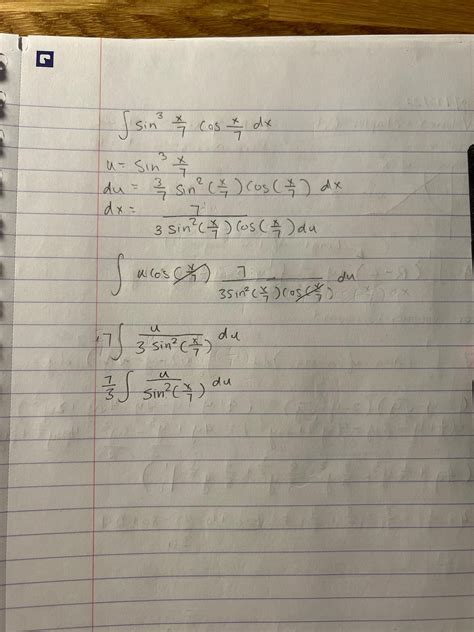 ∫ sin³ x/7 cos x/7 dx
u = sin³ x/7
du = 3/7 sin² (x/7) cos (x/7) dx
dx = 7 / 3 sin² (x/7) cos (x/7) du
∫ u cos (x/7) 7 / 3 sin² (x/7) cos (x/7) du
7 ∫ u / 3 sin² (x/7) du
7/3 ∫ u / sin² (x/7) du